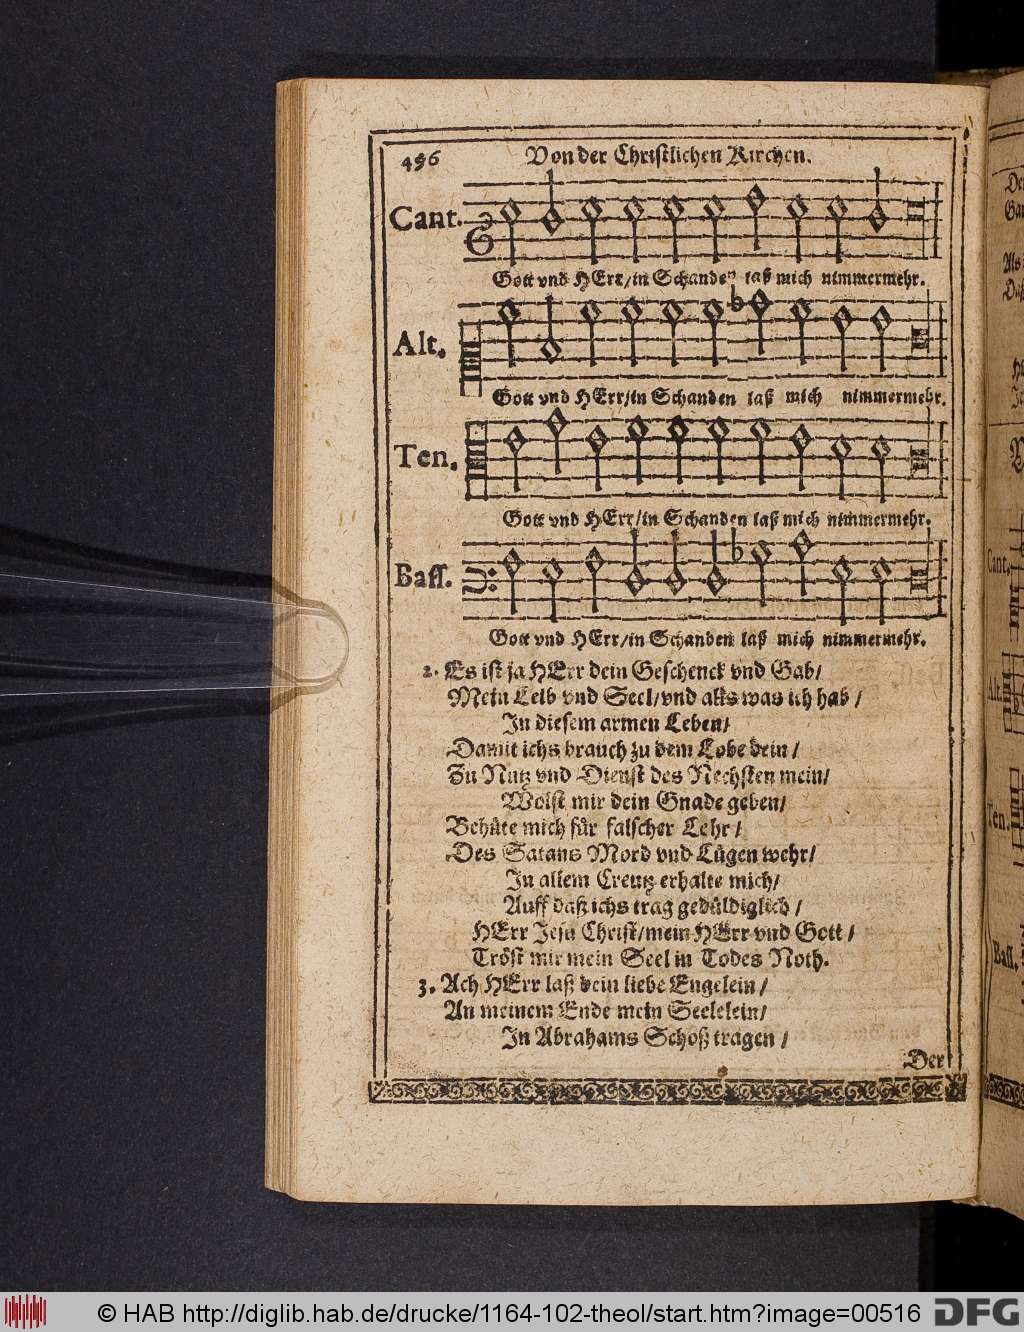 456 Von der Christlichen Kirchen.
Cant.
Gott vnd HErr/in Schanden laß mich nimmermehr.
Alt.
Gott vnd HErr/in Schanden laß mich nimmermehr.
Ten.
Gott vnd HErr/in Schanden laß mich nimmermehr.
Bass.
Gott vnd HErr/in Schanden laß mich nimmermehr.
2. Es ist ja HErr dein Geschenck vnd Gab/
Mein Leib vnd Seel/vnd alls was ich hab/
In diesem armen Leben/
Damit ichs brauch zu dem Lobe dein/
Zu Nutz vnd Dienst des Nechsten mein/
Wolst mir dein Gnade geben/
Behüte mich für falscher Lehr/
Des Satans Mord vnd Lügen wehr/
In allem Creutz erhalte mich/
Auff daß ichs trag gedüldiglich/
HErr Jesu Christ/mein HErr vnd Gott/
Tröst mir mein Seel in Todes Noth.
3. Ach HErr laß dein liebe Engelein/
An meinem Ende mein Seelelein/
In Abrahams Schoß tragen/
Der
Cant.
Alt.
Ten.
Bass.
© HAB http://diglib.hab.de/drucke/1164-102-theol/start.htm?image=00516 DFG